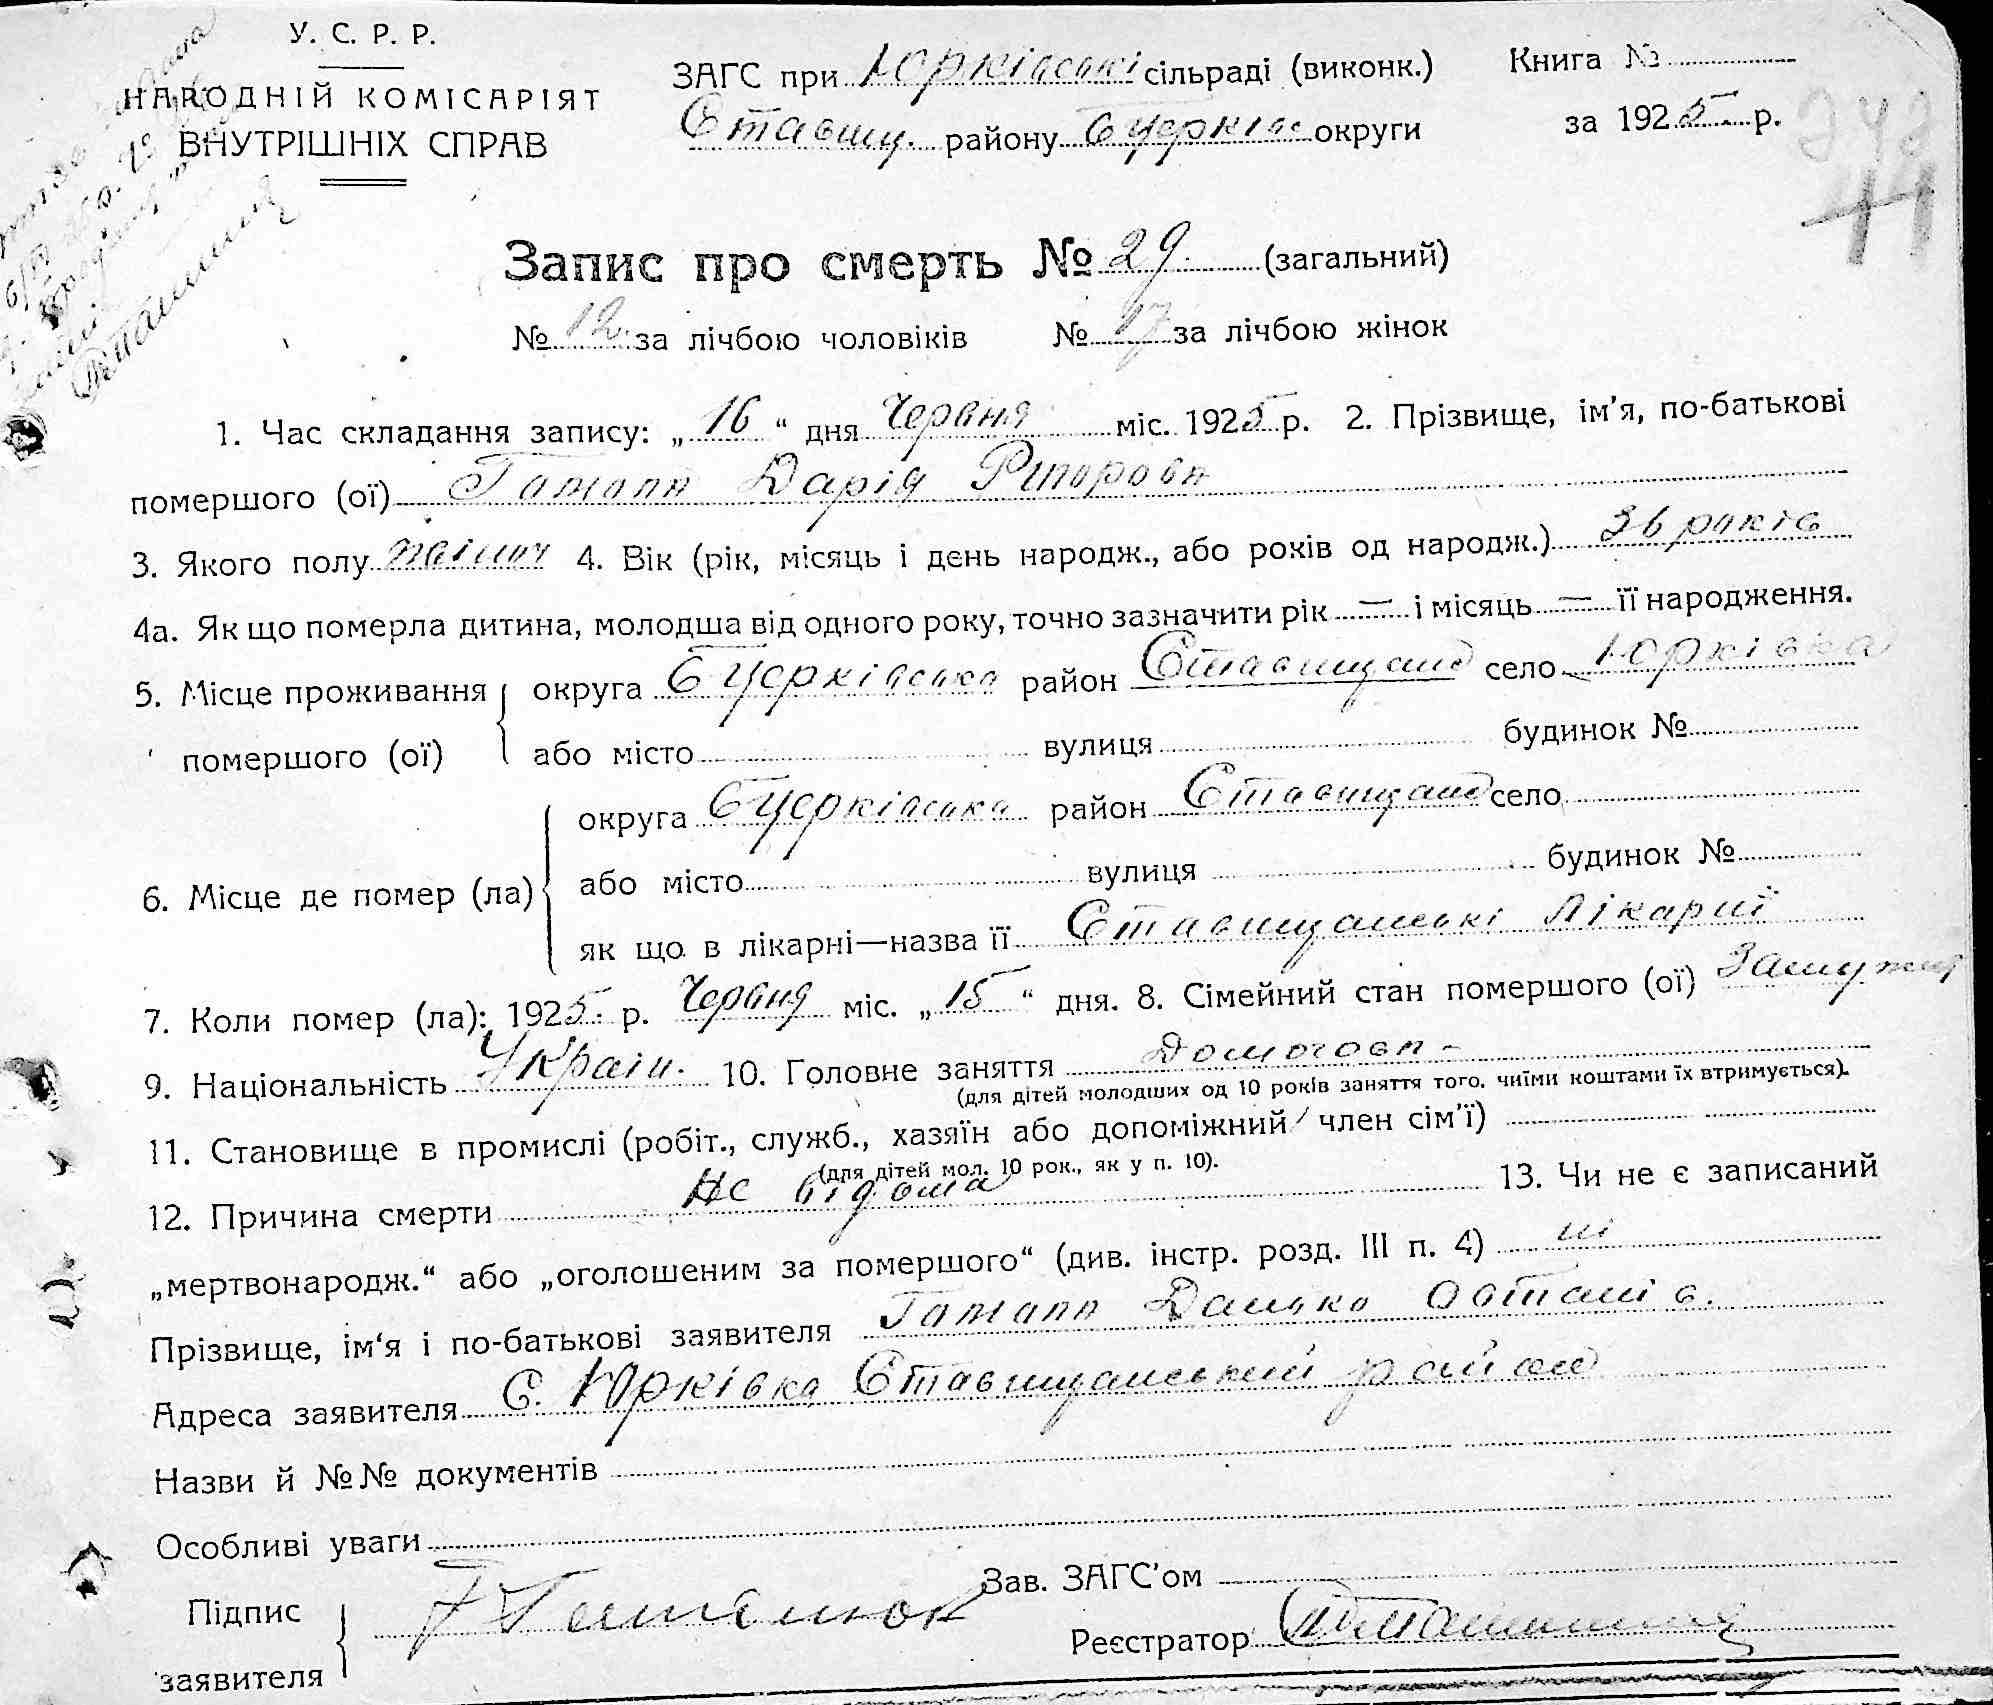 У. С. Р. Р.
НАРОДНІЙ КОМІСАРІЯТ
ВНУТРІШНІХ СПРАВ
ЗАГС при Юрківські сільраді (виконк.)
Ставищ. району БЦерків округи
Книга №
за 1925 р.
44
Запис про смерть № 29. (загальний)
№ 12 за лічбою чоловіків № 17 за лічбою жінок
1. Час складання запису: „16“ дня Червня міс. 1925 р. 2. Прізвище, ім'я, по-батькові
помершого (ої) Дарія
3. Якого полу 4. Вік (рік, місяць і день народж., або років од народж.) 36 років
4а. Як що померла дитина, молодша від одного року, точно зазначити рік — і місяць — її народження.
5. Місце проживання округа БЦерківська район Ставищанс село Юрківка
помершого (ої) або місто вулиця будинок №
округа БЦерківська район Ставищанс село
6. Місце де помер (ла) або місто вулиця будинок №
як що в лікарні—назва її Ставищанські Лікарнї
7. Коли помер (ла): 1925. р. Червня міс. „15“ дня. 8. Сімейний стан помершого (ої) Замужня
9. Національність Україн. 10. Головне заняття
(для дітей молодших од 10 років заняття того, чиїми коштами їх втримується).
11. Становище в промислі (робіт., служб., хазяїн або допоміжний член сім'ї)
(для дітей мол. 10 рок., як у п. 10).
12. Причина смерти Не відома 13. Чи не є записаний
„мертвонародж.“ або „оголошеним за помершого“ (див. інстр. розд. III п. 4) ні
Прізвище, ім'я і по-батькові заявителя Данько
Адреса заявителя С. Юрківка Ставищанський район
Назви й №№ документів
Особливі уваги
Підпис
заявителя
Зав. ЗАГС'ом
Реєстратор